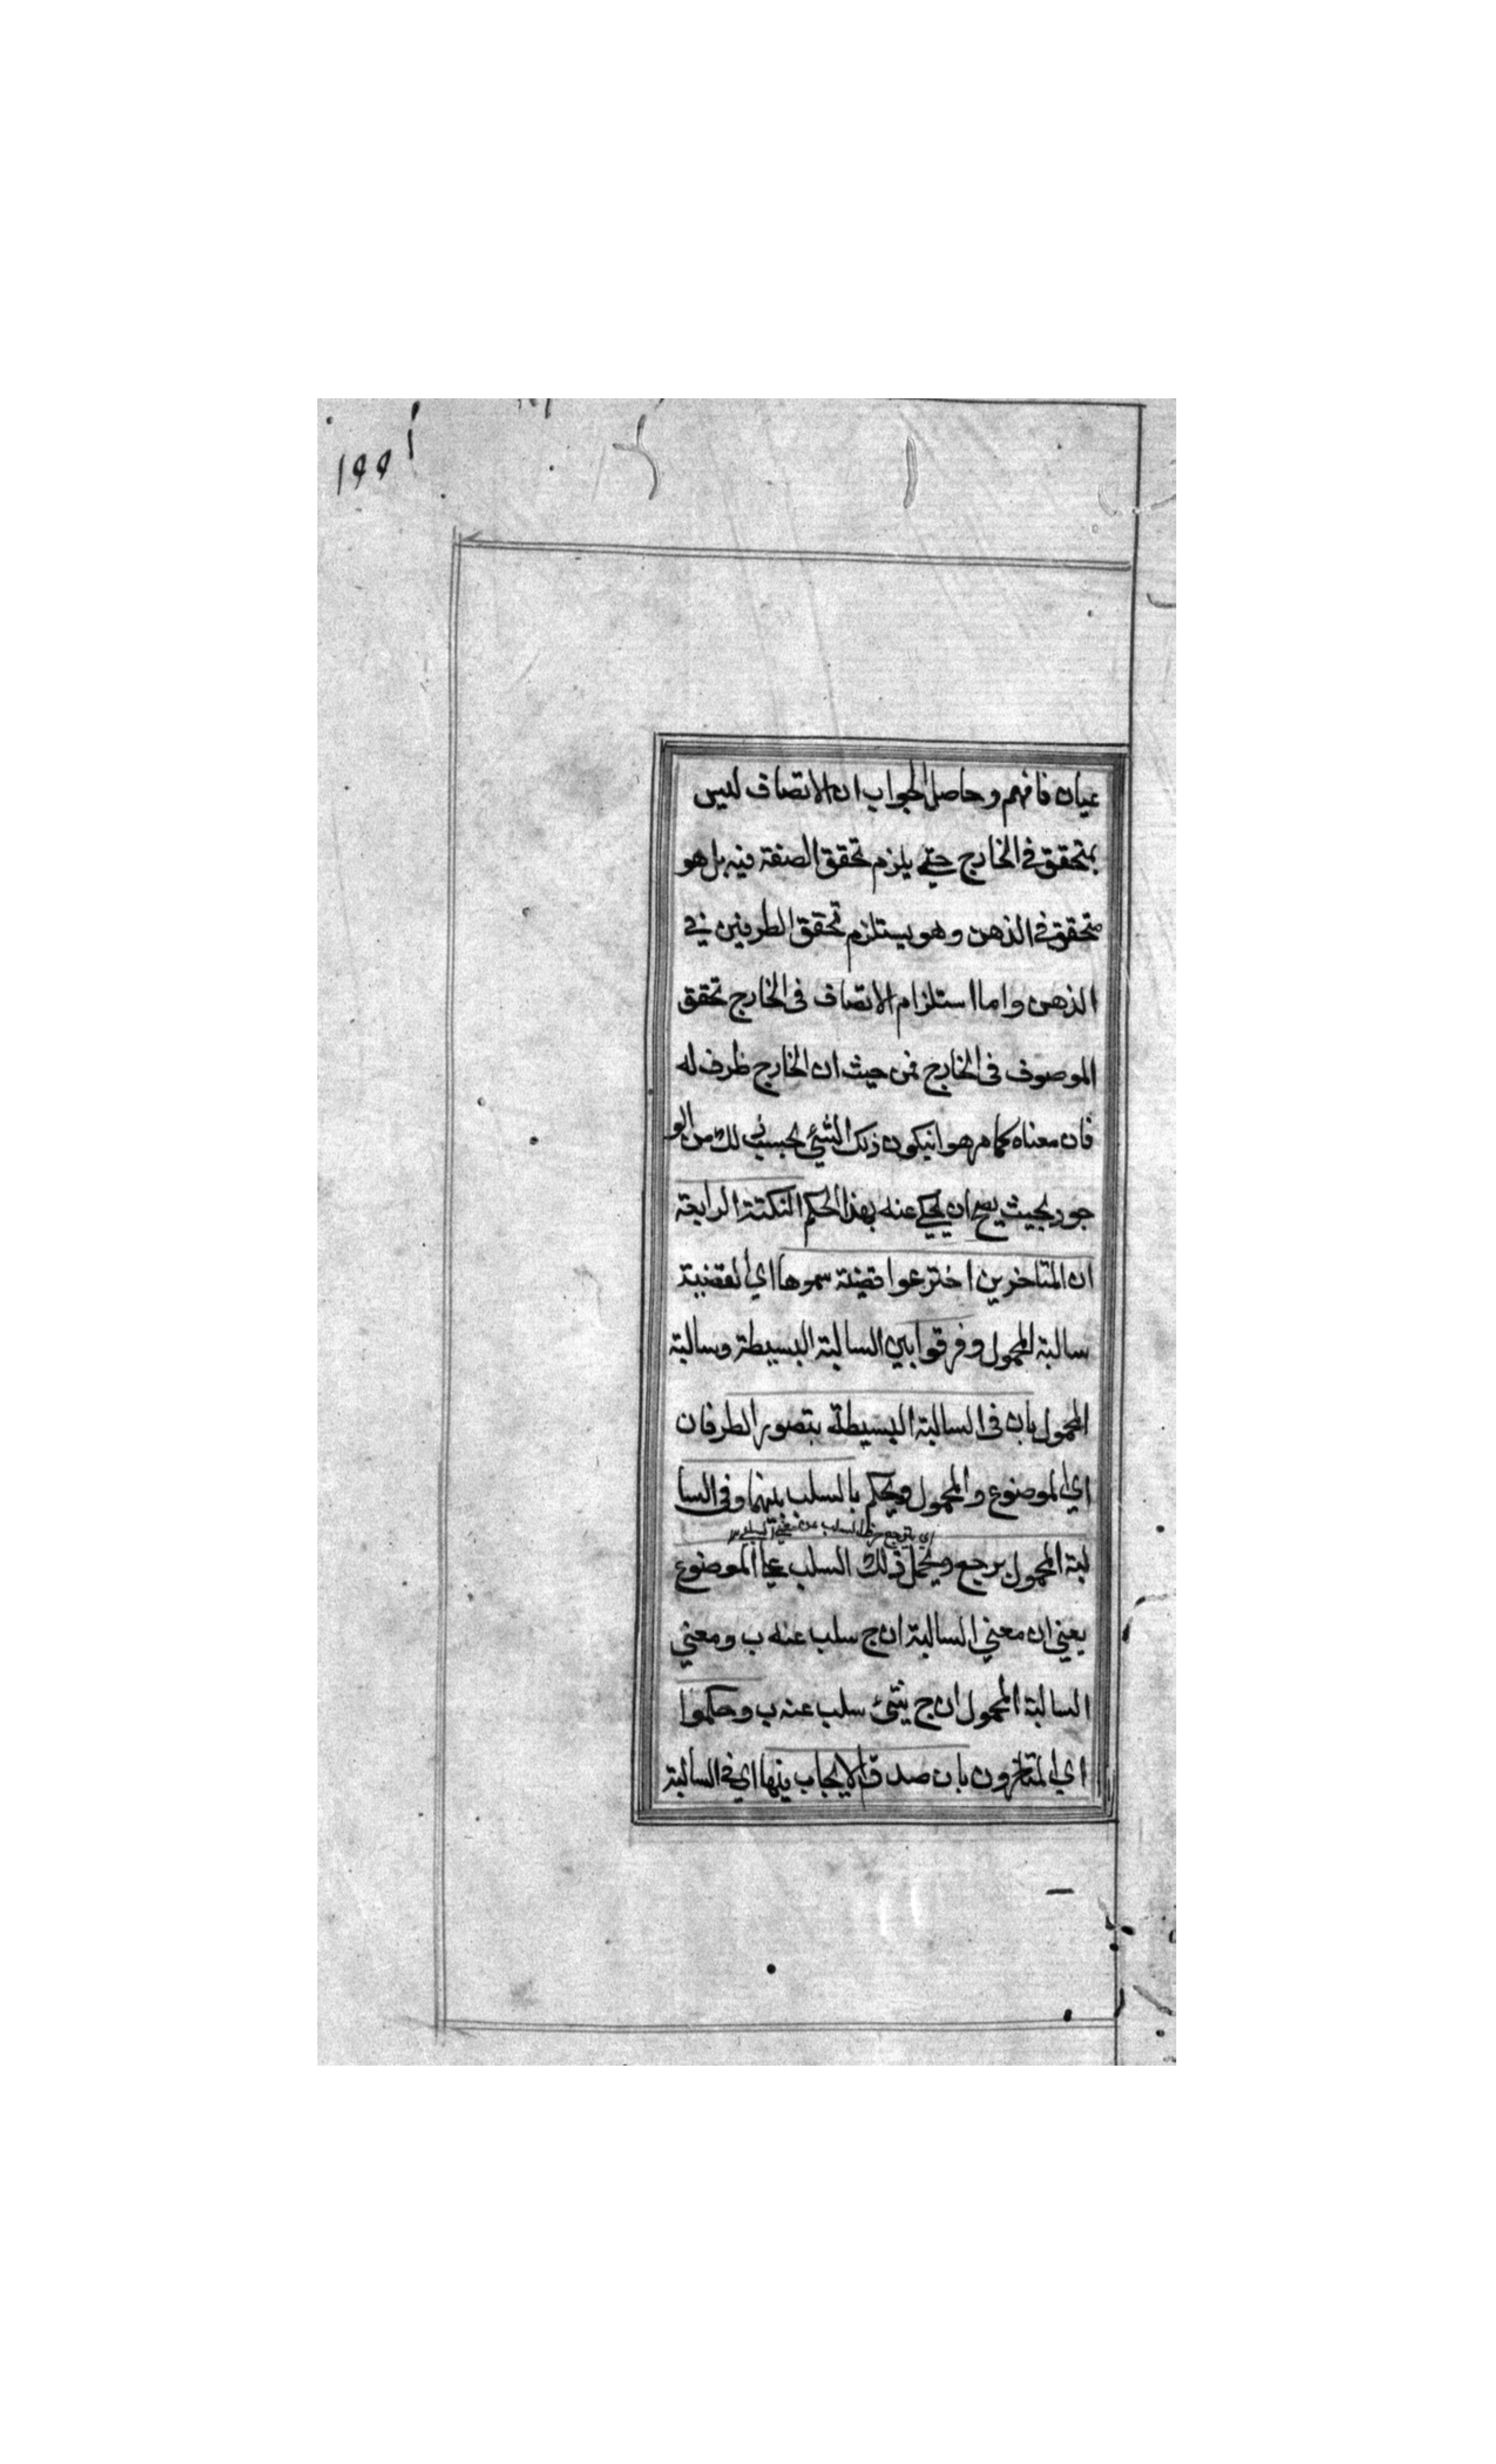 ١٩٩
عيان فافهم وحاصل الجواب ان الاتصاف ليس
بمتحقق في الخارج حتى يلزم تحقق الصفة فيه بل هو
متحقق في الذهن وهو يستلزم تحقق الطرفين في
الذهن واما استلزام الاتصاف في الخارج تحقق
الموصوف في الخارج فمن حيث ان الخارج ظرف له
فان معناه كما مر هو انيكون ذلك الشئ بحسب ذلك من الو
جود بحيث يصح ان يحكي عنه بهذا الحكم النكتة الرابعة
ان المتاخرين اخترعوا قضية سموها اي القضية
سالبة المحمول وفرقوا بين السالبة البسيطة وسالبة
المحمول بان في السالبة البسيطة يتصور الطرفان
اي الموضوع والمحمول ويحكم بالسلب بينهما وفي السا
لبة المحمول يرجع ويحمل ذلك السلب على الموضوع
يعني ان معني السالبة ان ج سلب عنه ب ومعني
السالبة المحمول ان ج شئ سلب عنه ب وحكموا
اي المتاخرون بان صدق الايجاب فيها اي في السالبة